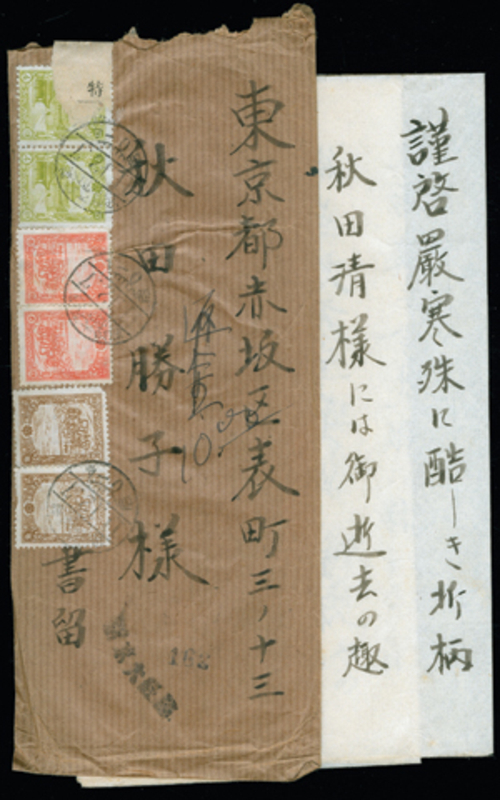 謹啓厳寒殊に酷しき折柄
秋田清様には御逝去の趣
東京都赤坂区表町三ノ十三
秋田勝子様
書留
特